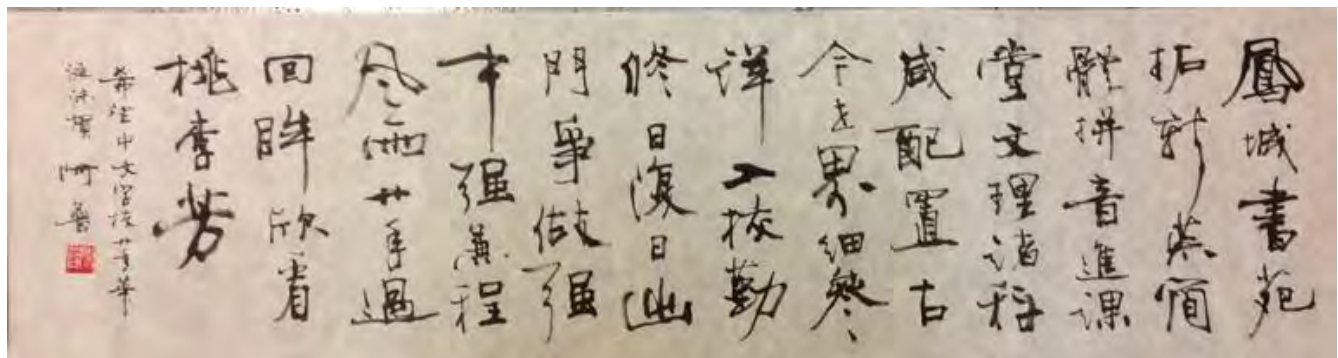 鳳城書苑
拓新荒簡
體拼音進課
堂文理諸科
咸配置古
今世界細參
詳入校勤
修日復日出
門爭做強
中強萬程
風雨廿年過
回眸欣看
桃李芳
希望中文學校廿年華
誕 賀 阿魯